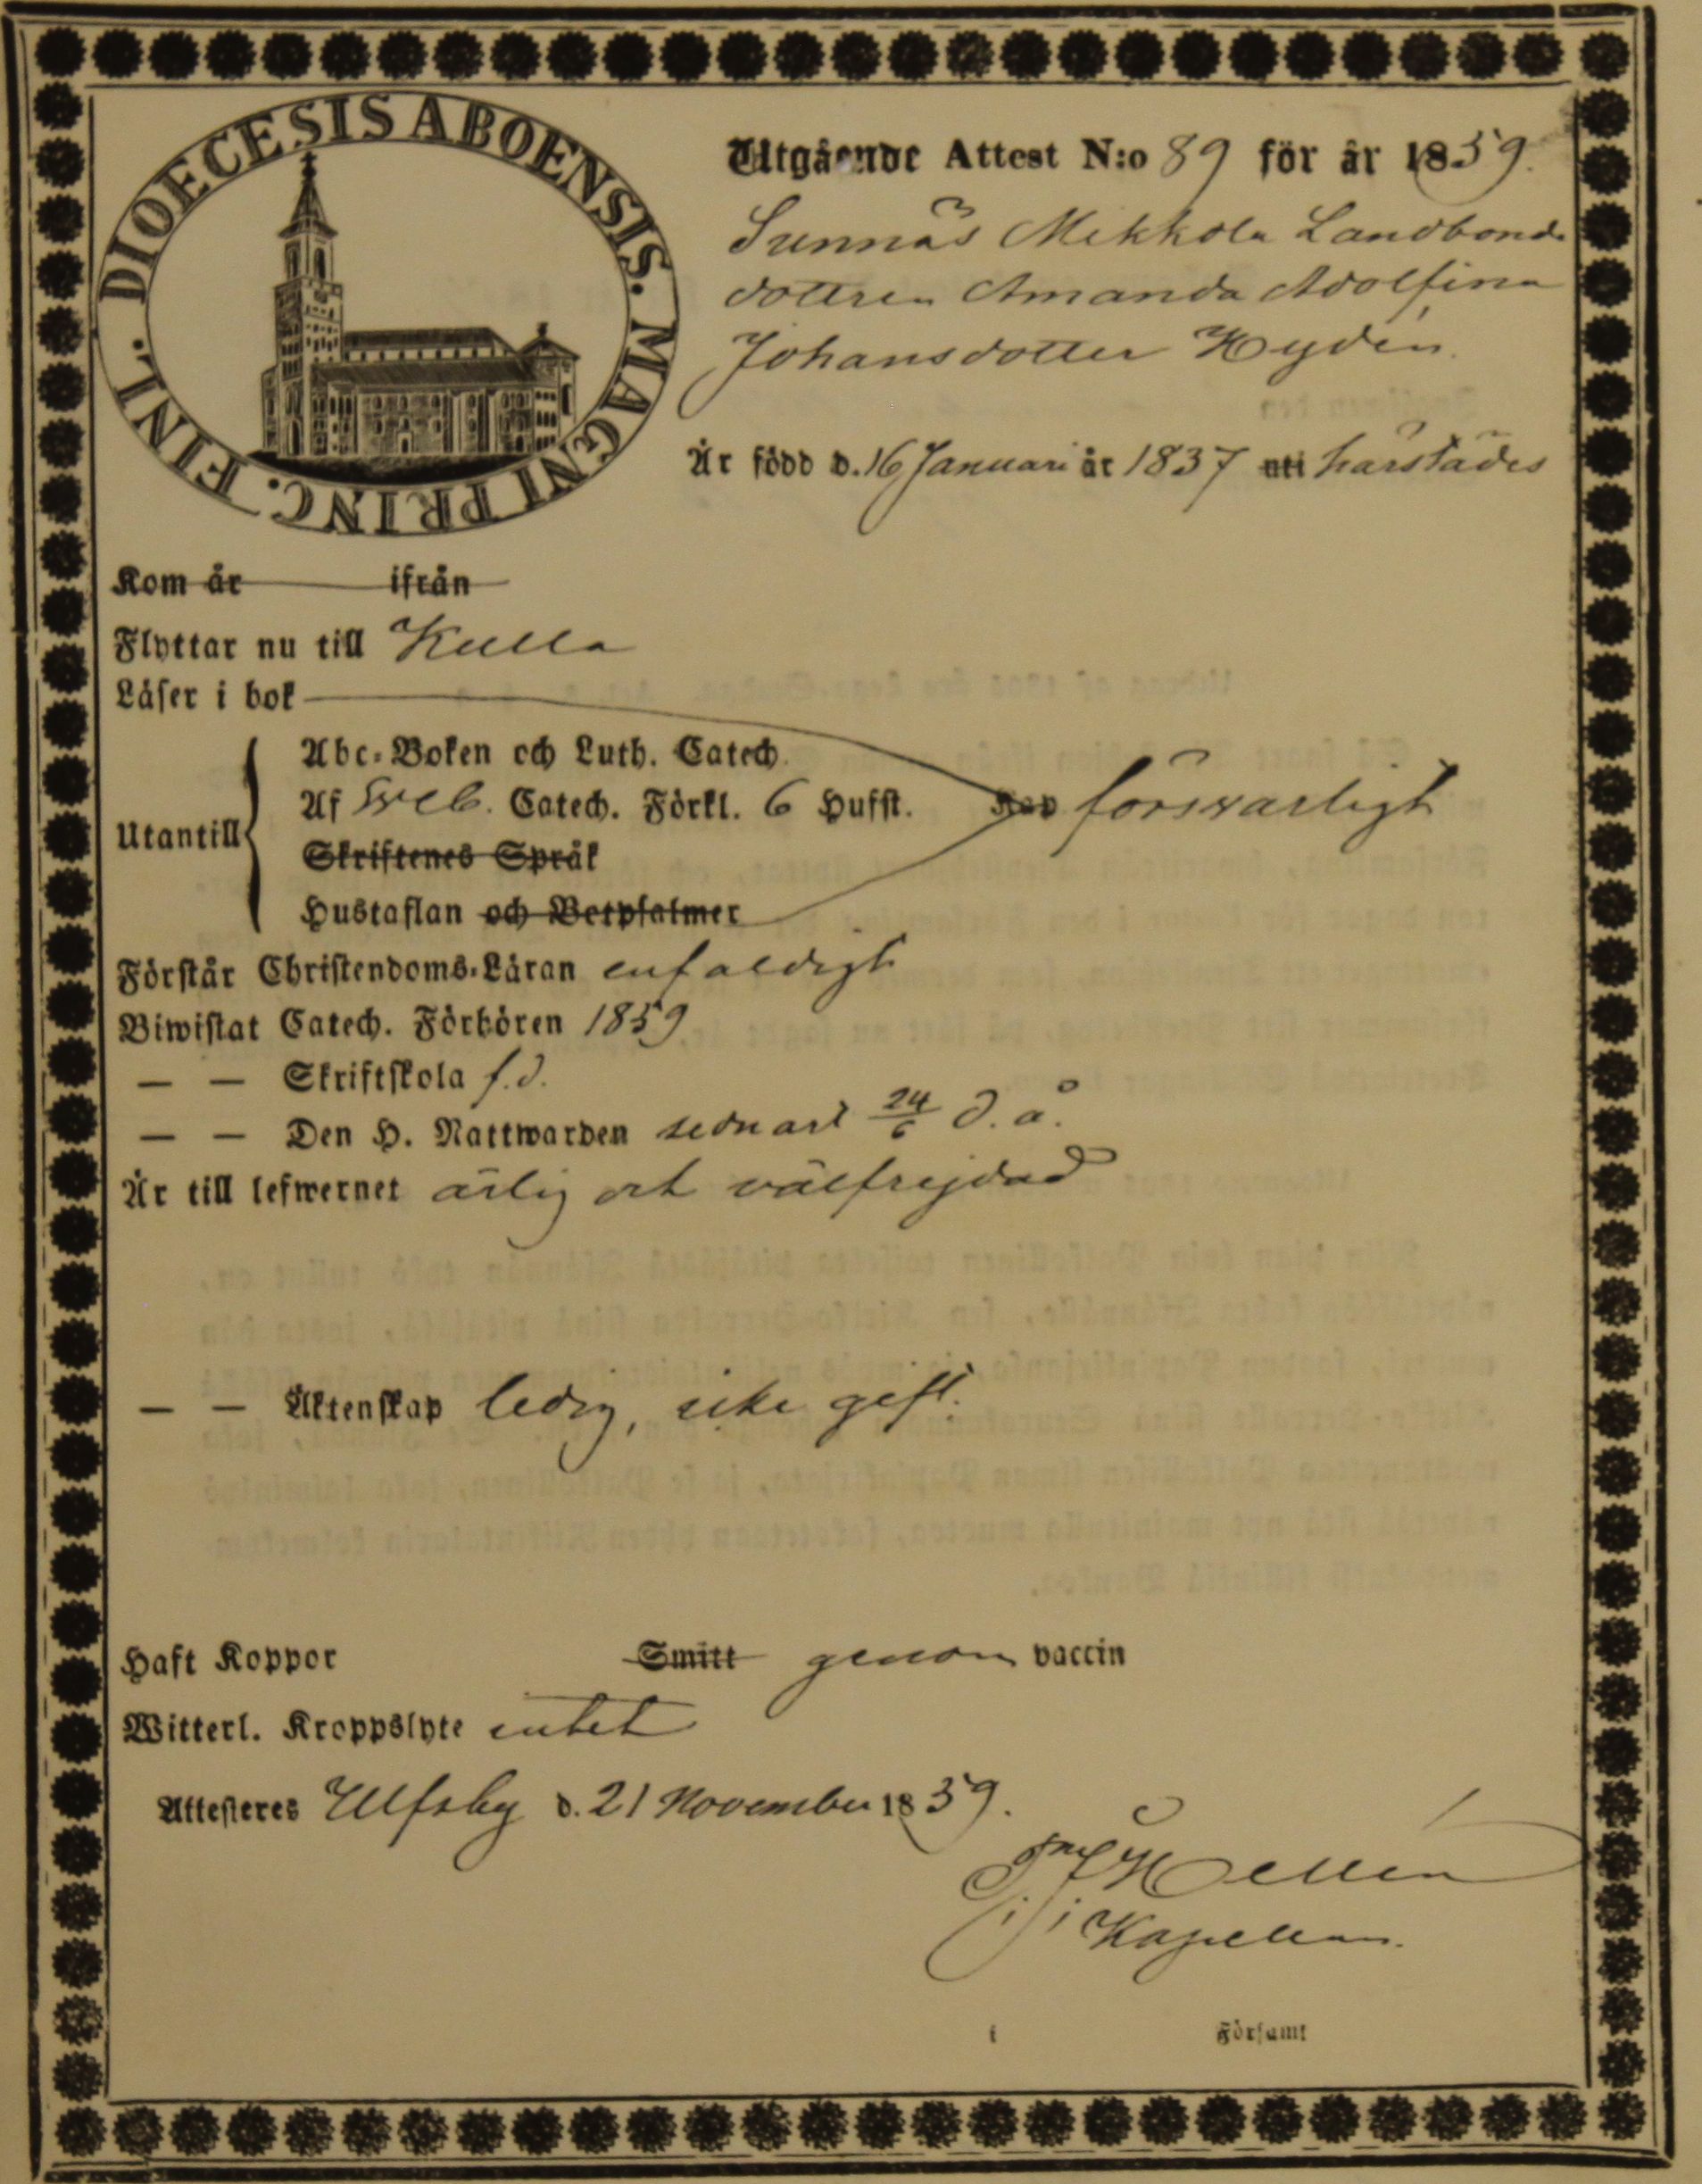 DIOECESIS ABOENSIS. MAGNI PRINC. FINL.
Utgående Attest N:o 89 för år 1859.
Sunnäs Mikkola Landbonde
dottren Amanda Adolfina
Johansdotter Hydén.
Är född d. 16 Januari år 1837 uti härstädes
Kom år ifrån
Flyttar nu till Kulla
Läser i bok
Utantill
Abc-Boken och Luth. Catech.
Af Sveb. Catech. Förkl. 6 Hufst. Kap försvarligt
Skriftenes Språk
Hustaflan och Botpsalmer
Förstår Christendoms-Läran enfaldigt
Biwistat Catech. Förhören 1859
— — Skriftskola f.d.
— — Den H. Nattwarden sednast 24/6 d. å.
Är till lefwernet ärlig och välfrejdad
— — Äktenskap ledig, icke gift.
Haft Koppor Smitt genom vaccin
Witterl. Kroppslyte intet
Attesteres Ulfsby d. 21 November 1859.
Hellén
Kapellan.
i Församl